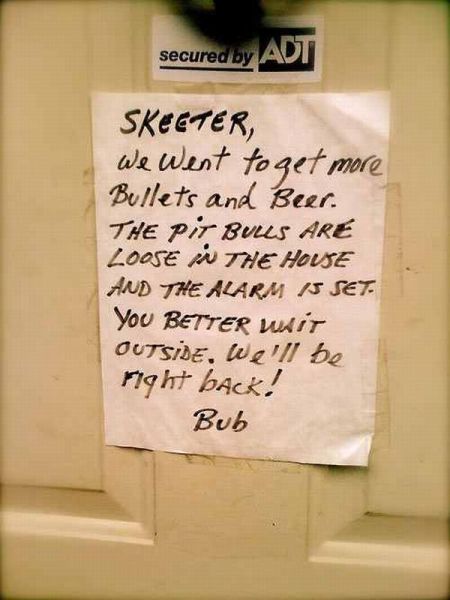 secured by ADT
SKEETER,
we went to get more
Bullets and Beer.
THE PIT BULLS ARE
LOOSE IN THE HOUSE
AND THE ALARM IS SET.
YOU BETTER WAIT
OUTSIDE. We'll be
right bAck!
Bub